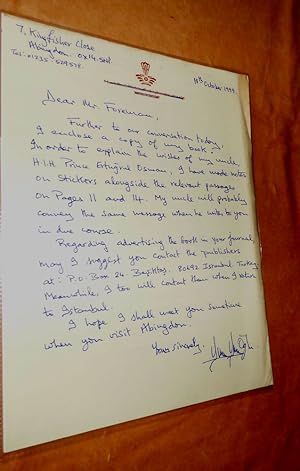 7, Kingfisher Close
Abingdon. OX14.5NP.
Tel: 01235
11th October 1999.
Dear Mr. Foreman,
Further to our conversation today,
I enclose a copy of my book.
In order to explain the wishes of my uncle,
H.I.H Prince Ertuğrul Osman, I have made notes
on Stickers alongside the relevant passages
on Pages 11 and 14. My uncle will probably
convey the same message when he writes to you
in due course.
Regarding advertising the book in your journal,
may I suggest you contact the publishers
at: P.O.Box 24. Beşiktaş. 80692 Istanbul. Turkey.
Meanwhile, I too will contact them when I return
to Istanbul.
I hope I shall meet you sometime
when you visit Abingdon.
Yours sincerely,